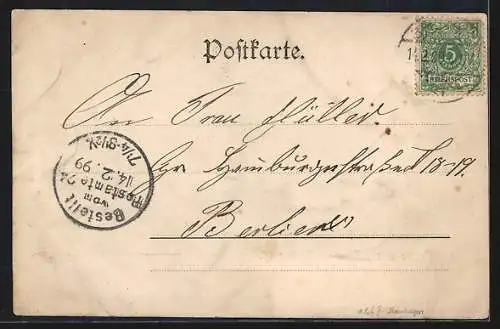 Postkarte.
5
REICHSPOST
An Frau Müller
Gr Hamburgerstraße 18-19.
Berlin
Bestellt
vom
Postamte 24
14.2.99
7¼-8½ N